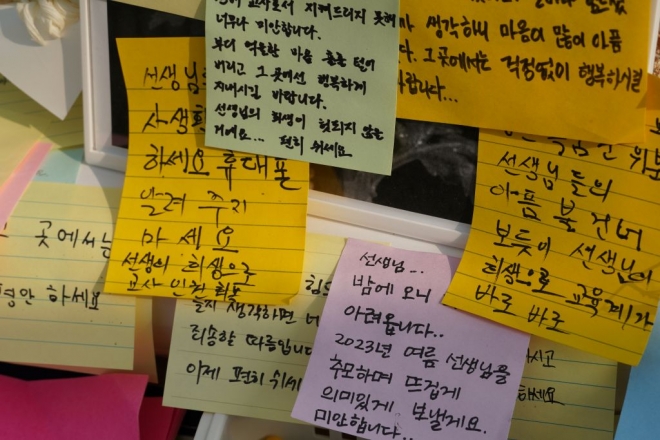 지켜드리지 못해
너무나 미안합니다.
부디 억울한 마음 훌훌 털어
버리고 그 곳에선 행복하게
지내시길 바랍니다.
선생님의 희생이 헛되지 않을
거에요... 편히 쉬세요
생각하니 마음이 많이 아픔
그곳에서는 걱정없이 행복하시길
선생님
사생활
하세요 휴대폰
알려 주지
마세요
선생의 희생으로
교사 인권 회복
선생님들의
아픔 불 건너
보듯이 선생님의
희생으로 교육계가
바로 바로
곳에서는
평안 하세요
생각하면
죄송할 따름입니다
이제 편히 쉬세
선생님...
밤에 오니
아려옵니다..
2023년 여름 선생님을
추모하며 뜨겁게
의미있게 보낼게요.
미안합니다...